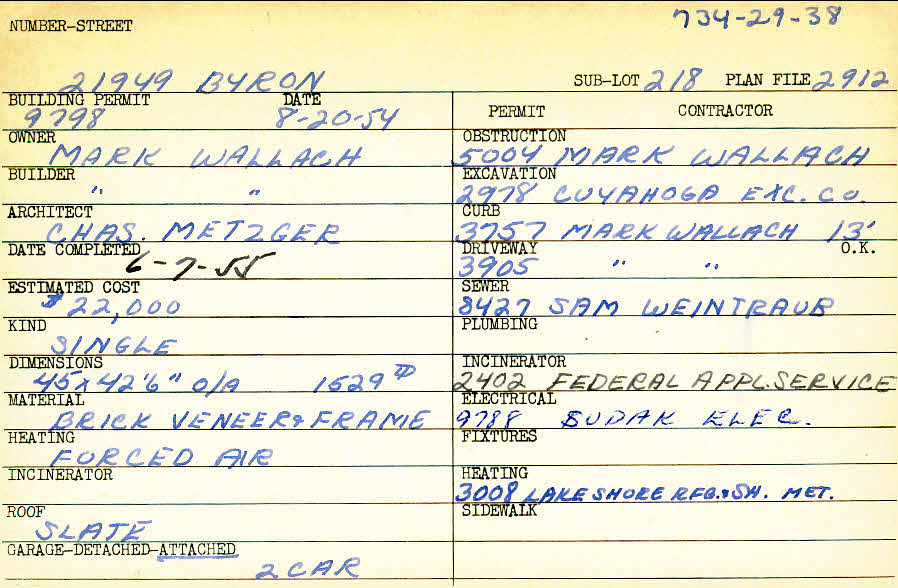 734-29-38
NUMBER-STREET
21949 BYRON
SUB-LOT 218 PLAN FILE 2912
BUILDING PERMIT DATE
9798 8-20-54
OWNER
MARK WALLACH
BUILDER
" "
ARCHITECT
CHAS. METZGER
DATE COMPLETED
6-7-55
ESTIMATED COST
$22,000
KIND
SINGLE
DIMENSIONS
45 x 42'6" O/A 1529 #
MATERIAL
BRICK VENEER & FRAME
HEATING
FORCED AIR
INCINERATOR
ROOF
SLATE
GARAGE-DETACHED-ATTACHED
2 CAR
PERMIT CONTRACTOR
OBSTRUCTION
5004 MARK WALLACH
EXCAVATION
2978 CUYAHOGA EXC. CO.
CURB
3757 MARK WALLACH 13'
DRIVEWAY O.K.
3905 " "
SEWER
8427 SAM WEINTRAUB
PLUMBING
INCINERATOR
2402 FEDERAL APPL. SERVICE
ELECTRICAL
9788 BUDAK ELEC.
FIXTURES
HEATING
3008 LAKE SHORE RFG. & SH. MET.
SIDEWALK